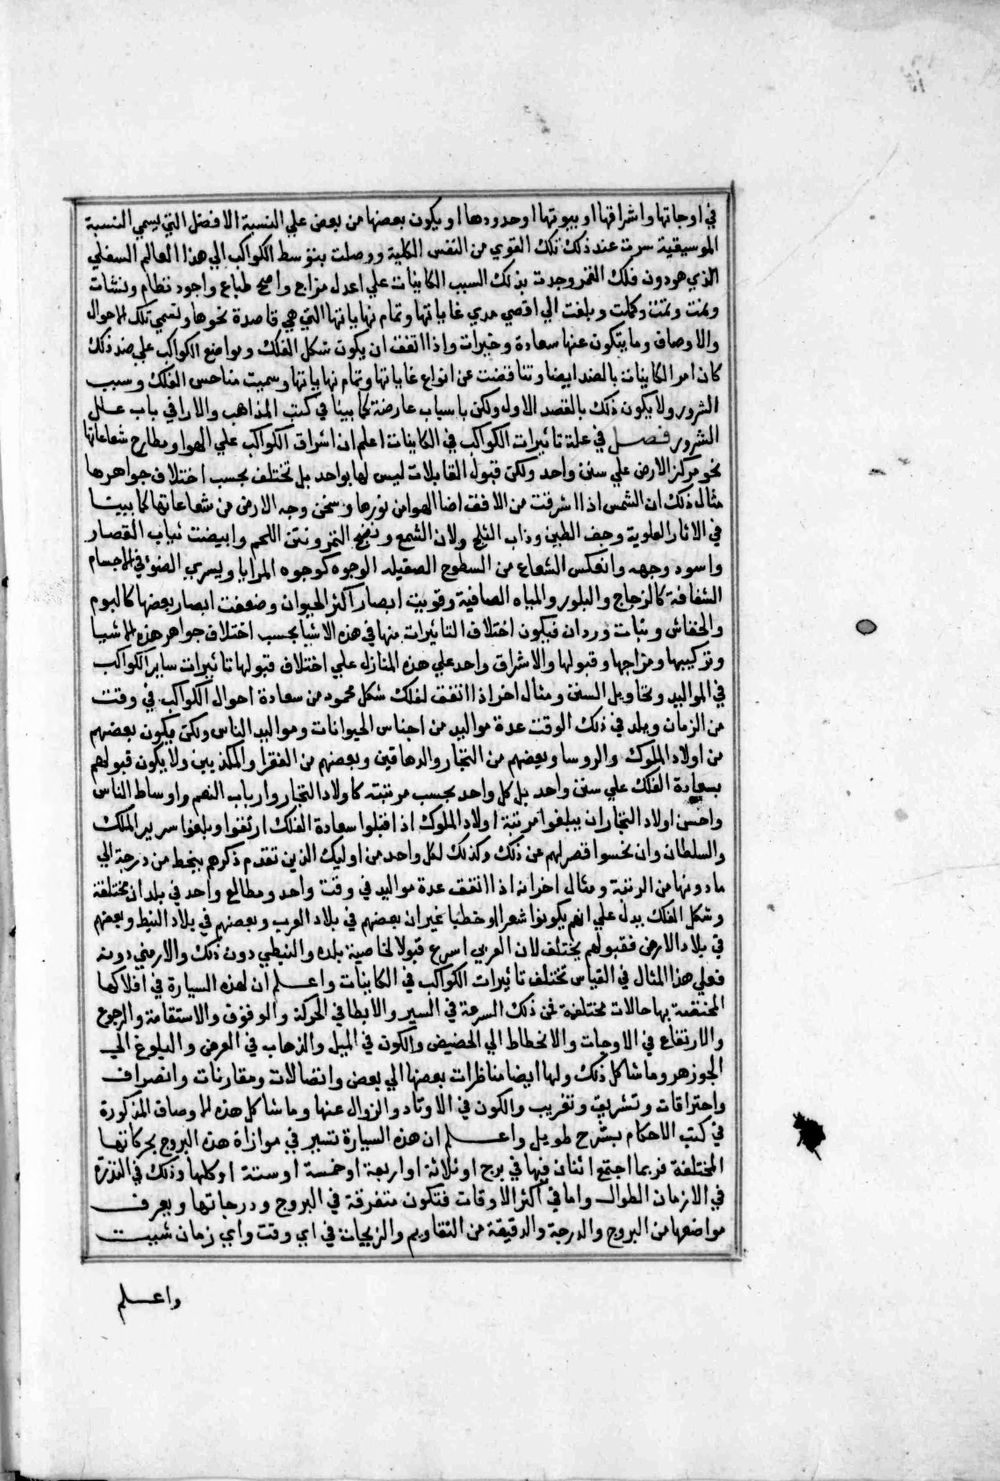 في اوجاتها واشرافها او بيوتها او حدودها او يكون بعضها من بعض علي النسبة الافضل التي يسمي النسبة
الموسيقية سرت عند ذلك تلك القوي من النفس الكلية ووصلت بتوسط الكواكب الي هذا العالم السفلي
الذي هو دون فلك القمر وجدت بذلك السبب الكاينات علي اعدل مزاج واصح طباع واجود نظام ونشات
ونمت وتمت وكملت وبلغت الي اقصي مدي غاياتها وتمام نهاياتها التي هي قاصدة نحوها وتسمي تلك الاحوال
والاوصاف وما يتكون عنها سعادة وخيرات واذا اتفق ان يكون شكل الفلك ومواضع الكواكب علي ضد ذلك
كان امر الكاينات بالضد ايضا وتناقضت عن انواع غاياتها وتمام نهاياتها وسميت مناحس الفلك وسبب
الشرور ولا يكون ذلك بالقصد الاول ولكن باسباب عارضة كما بينا في كتب المذاهب والارا في باب علل
الشرور فصل في علة تاثيرات الكواكب في الكاينات اعلم ان اشراق الكواكب علي الهوا ومطارح شعاعاتها
نحو مركز الارض علي سنن واحد ولكن قبول القابلات ليس لها بواحد بل تختلف بحسب اختلاف جواهرها
مثال ذلك ان الشمس اذا اشرقت من الافق اضا الهوا من نورها وسخن وجه الارض من شعاعاتها كما بينا
في الاثار العلوية وجف الطين وذاب الثلج ولان الشمع ونضج الثمر ونتن اللحم وابيضت ثياب القصار
واسود وجهه وانعكس الشعاع من السطوح الصقيله الوجوه كوجوه المرايا ويسري الضوء في الاجسام
الشفافة كالزجاج والبلور والمياه الصافية وقويت ابصار اكثر الحيوان وضعفت ابصار بعضها كالبوم
والخفاش وبنات وردان فيكون اختلاف التاثيرات منها في هذه الاشيا بحسب اختلاف جواهر هذه الاشيا
وتركيبها ومزاجها وقبولها والاشراق واحد علي هذه المنازل علي اختلاف قبولها تاثيرات ساير الكواكب
في المواليد وتحاويل السنن ومثال اخر اذا اتفق لفلك شكل محمود من سعادة احوال الكواكب في وقت
من الزمان ويلد في ذلك الوقت عدة مواليد من اجناس الحيوانات ومواليد الناس ولكن يكون بعضهم
من اولاد الملوك والروسا وبعضهم من التجار والدهاقين وبعضهم من الفقرا والمكذيين ولا يكون قبولهم
بسعادة الفلك علي سنن واحد بل كل واحد بحسب مرتبته كاولاد التجار وارباب النعم واوساط الناس
واحسن اولاد التجار ان يبلغوا مرتبة اولاد الملوك اذا اقبلوا سعادة الفلك ارتفوا وبلغوا سرير الملك
والسلطان وان نحسوا قصر لهم من ذلك وكذلك لكل واحد من اوليك الذين تقدم ذكرهم ينحط من درجة الي
ما دونها من الرتبة ومثال اخر انه اذا اتفق عدة مواليد في وقت واحد ومطالع واحد في بلدان مختلفة
وشكل الفلك يدل علي انهم يكونوا شعرا او خطبا غير ان بعضهم في بلاد العرب وبعضهم في بلاد النبط وبعضهم
في بلاد الارمن فقبولهم يختلف لان العربي اسرع قبولا لخاصية بلده والنبطي دون ذلك والارمني دونه
فعلي هذا المثال في القياس تختلف تاثيرات الكواكب في الكاينات واعلم ان لهذه السيارة في افلاكها
المختصة بها حالات مختلفة فمن ذلك السرعة في السير والابطا في الحركة والوقوف والاستقامة والرجوع
والارتفاع في الاوجات والانحطاط الي الحضيض والكون في الميل والذهاب في العرض والبلوغ الي
الجوزهر وما شاكل ذلك ولها ايضا مناظرات بعضها الي بعض واتصالات ومقارنات وانصراف
واحتراقات وتشريق وتغريب والكون في الاوتاد والزوال عنها وما شاكل هذه الاوصاف المذكورة
في كتب الاحكام بشرح طويل واعلم ان هذه السيارة تسير في موازاة هذه البروج بحركاتها
المختلفة فربما اجتمع اثنان فيها في برج او ثلاثة او اربعة او خمسة او ستة او كلها وذلك في الندرة
في الازمان الطوال واما في اكثر الاوقات فتكون متفرقة في البروج ودرجاتها ويعرف
مواضعها من البروج والدرجة والدقيقة من التقاويم والزيجات في اي وقت واي زمان شيت
واعلم